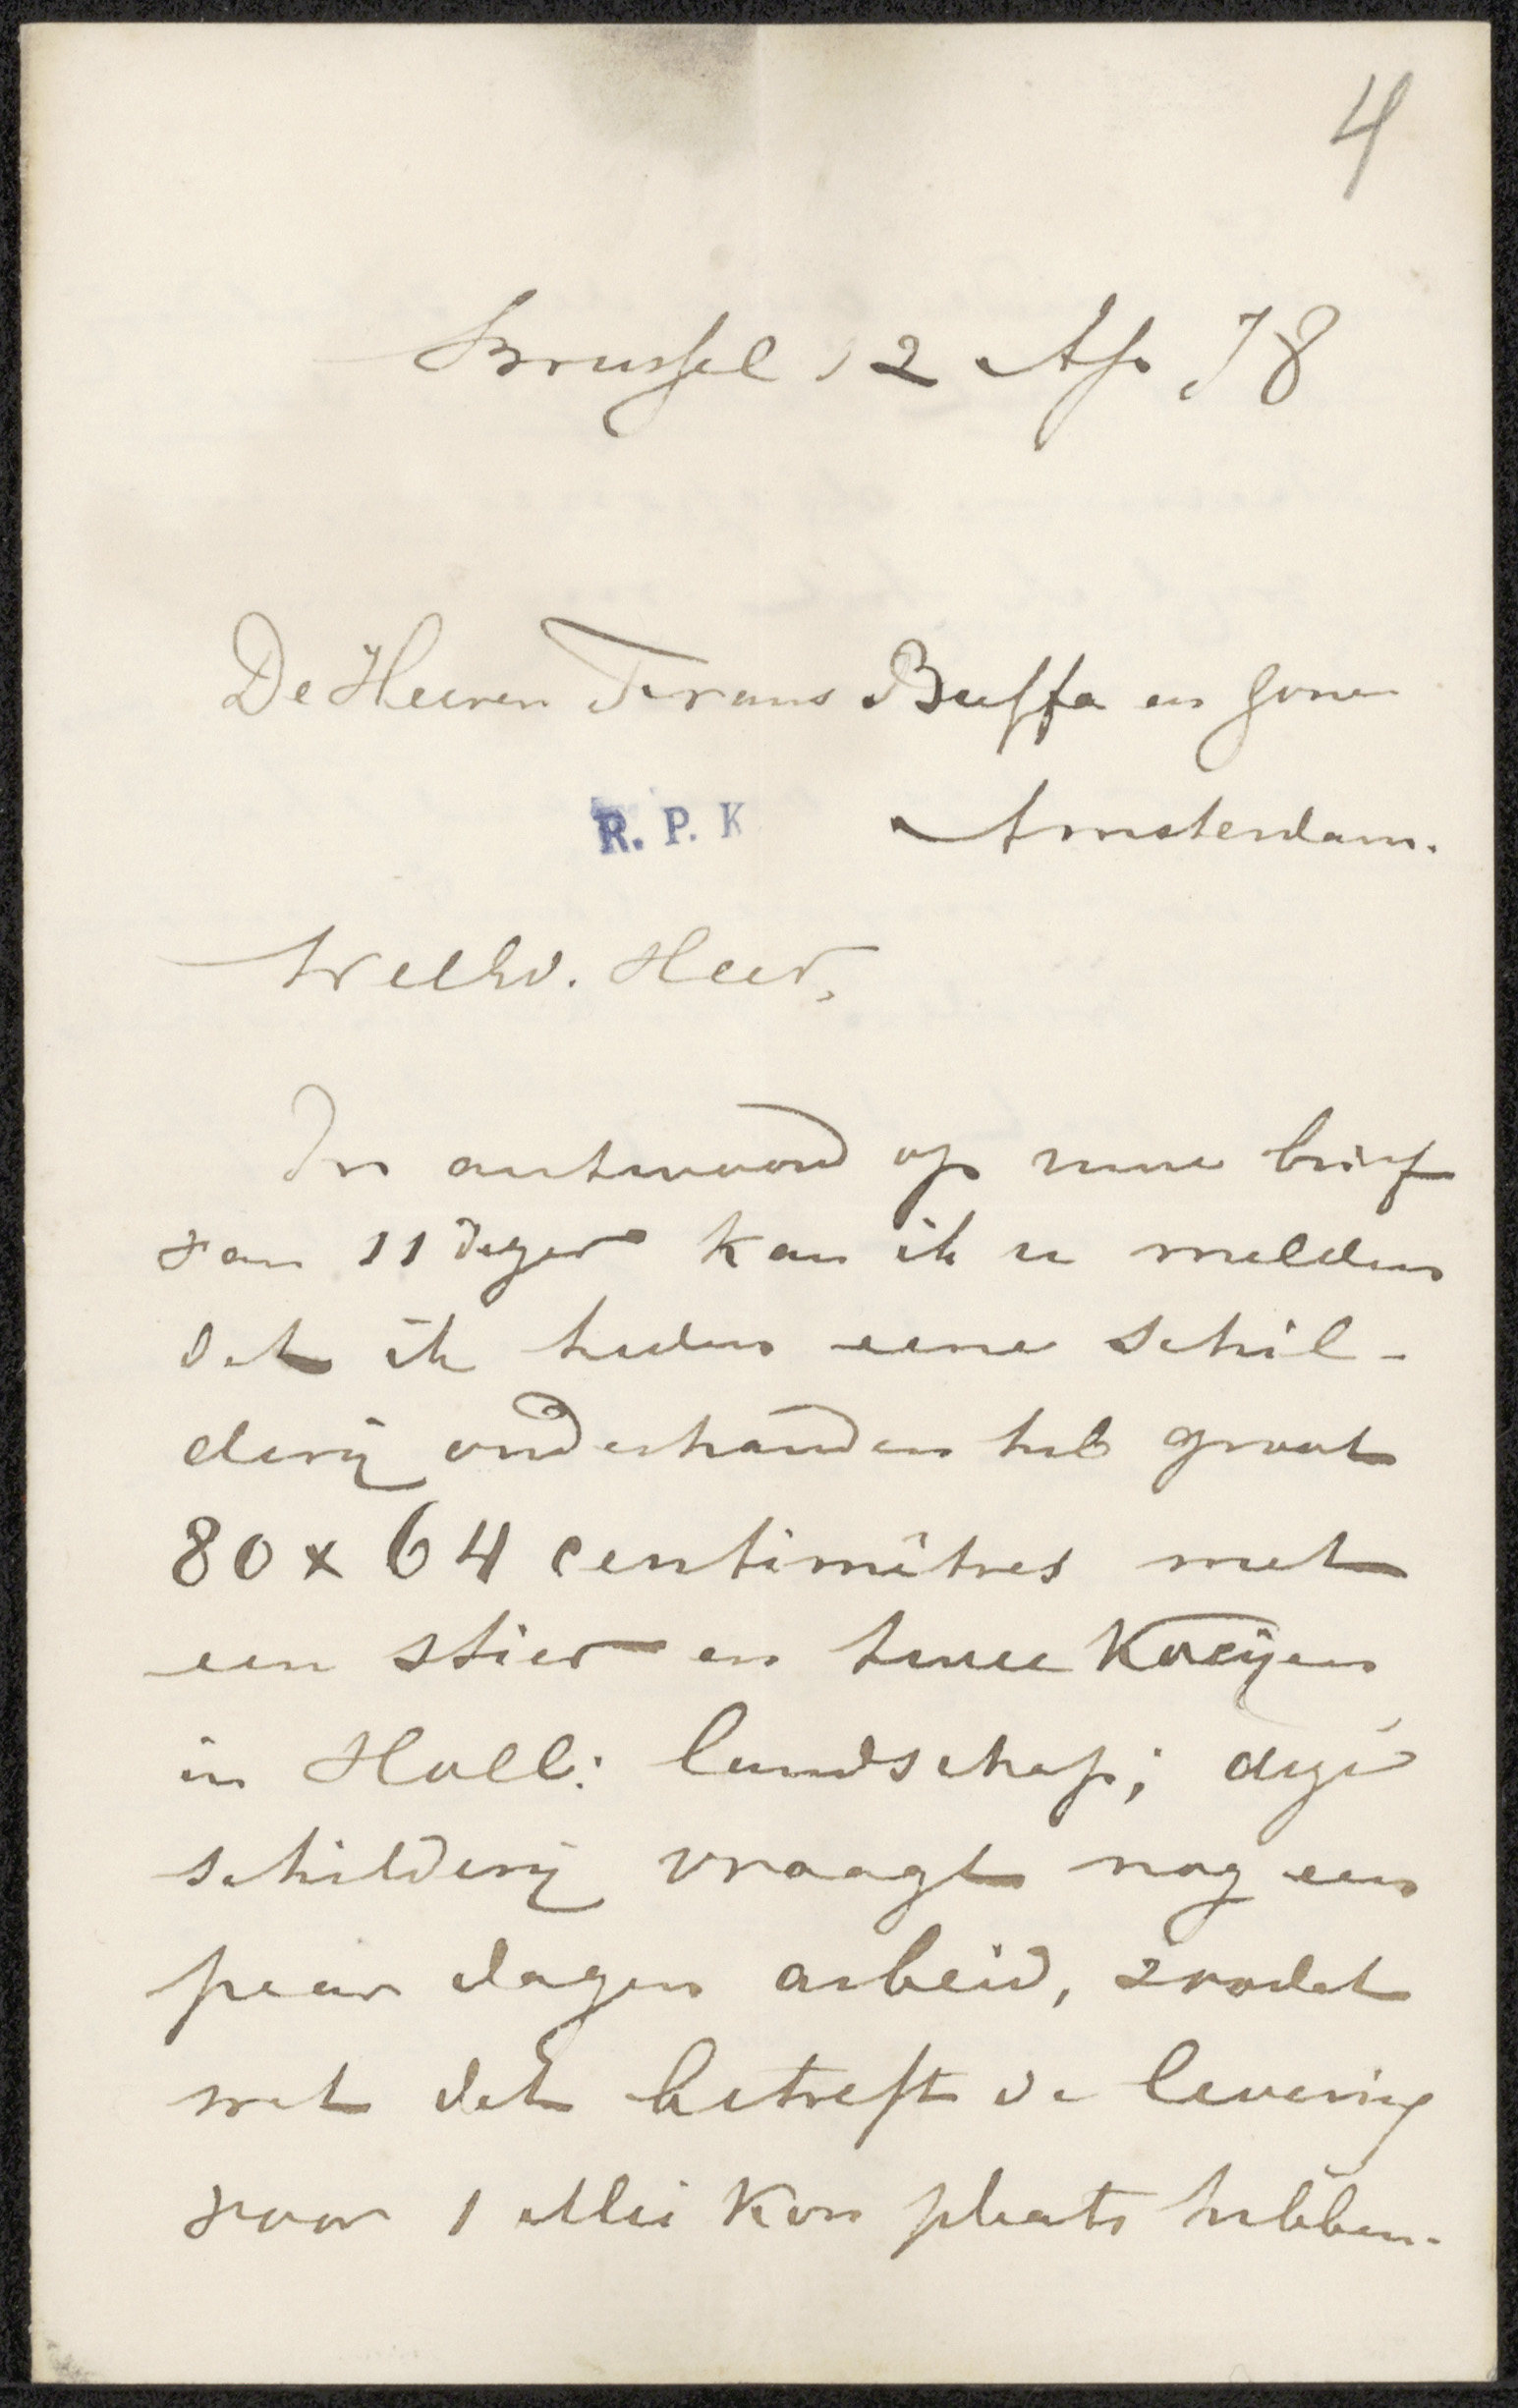 4
Brussel 12 Ap 78
De Heeren Frans Buffa en Zonen
R. P. K
Amsterdam.
WelEd. Heer,
In antwoord op uwe brief
van 11 dezer kan ik u melden
dat ik heden eene schil-
derij onderhanden heb groot
80 x 64 centimètres met
een stier en twee Koeijen
in Holl: landschap; deze
schilderij vraagt nog een
paar dagen arbeid, zoodat
wat dat betreft de levering
voor 1 Mei kon plaats hebben.